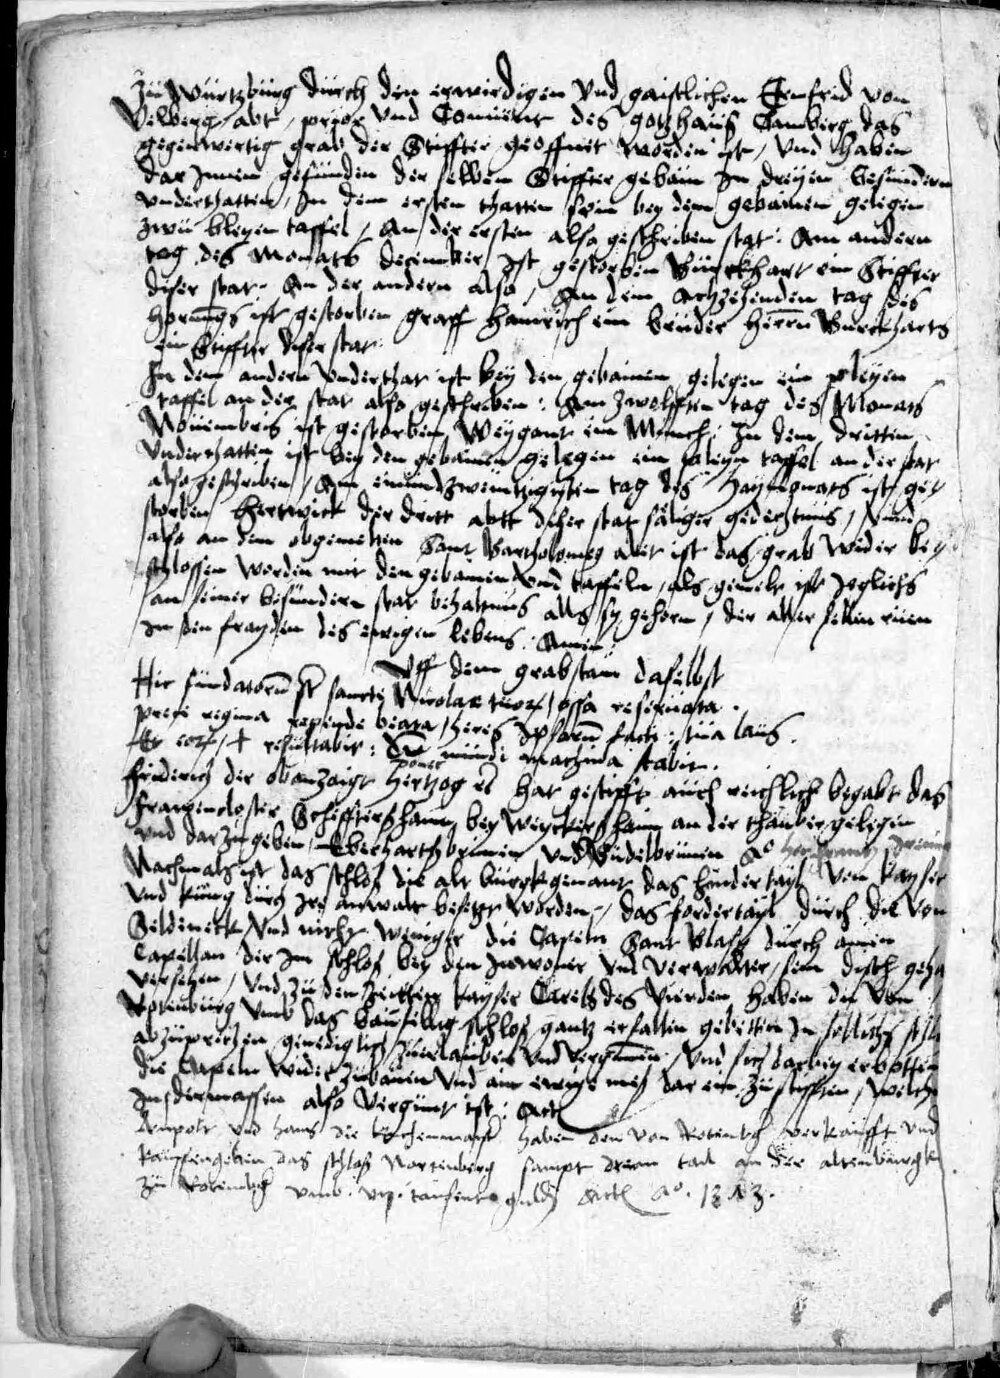 Zu Wurtzburg durch den erwirdigen Vnd gaistlichen Erenfrid von
Velberg abt, prior Vnd Conuent des gotzhaus Camberg das
gegenwertig grab der Stiffter geoffnet worden ist, Vnd haben
dar Innen gefunden der selben Stiffter gebain In dreyen besundern
vnderthatten, In dem ersten thatten sein bey dem gebainen gelegen
zwu bleyen taffel, An der ersten also geschriben stat: Am andern
tag des Monats december Ist gestorben Burckhart ein Stiffter
diser stat. An der andern also, An dem Achzehenden tag des
hornungs ist gestorben graff Hainrich ein bruder herrn Burckharts
ein Stiffter diser stat:
In dem andern Vnderthat ist bey den gebainen gelegen ein pleyen
taffel an der stat also geschriben: Am zwolfften tag des Monats
Nouembris ist gestorben Weygant ein Munch: In dem dritten
Vnderthatten ist bey den gebainen gelegen ein pleyin taffel an der stat
also geschriben, Am einundzweintzigisten tag des Haymonats ist ge
storben Hertwick der dritt abtt diser stat säliger gedechtnus, Vnnd
also an dem obgemelten Sant Bartholomeg abet ist das grab wider be
schlossen worden mit den gebainen Vnd taffeln, als gemelt ist Jeglichs
an seiner besundern stat behaltnus alls sy gehorn, der aller sellen ruen
In den frayden des ewigen lebens. Amen
Vff dem grabstain daselbst
Hic fundatorum sancti Nicolae tuorum ossa reseruata.
preci regina repende beata, heres Ipsorum facti: tua laus.
Ex resultabit: Dum mundi machina stabit.
Friderich der obanzaigt Hertzog hat gestifft auch reichlich begabt das
Frawencloster Schefftershaim bey Weyckershaim an der thauber gelegen
vnd dar zu geben, Eberhartzbrunnen vnd Budelbrunen Ao
Nachmals ist das schlos die alt burgk genant das hinder tayl Von Kayser
vnd kung durch Ire anwalt besetzt worden, das fordertayl durch die von
Seldeneck Vnd nicht weniger die Capeln Sant Blasy durch ainen
Capellan der Im schlos bey den Inwoner vnd verwalter, sein disch geha
versehen, Vnd zu den zeitten Kayser Carels des Vierden haben die von
Rotenburg vmb das baufellig schlos gantz erfallen gebetten In sollichs schlos
abzuprechen genedigkich zuerlauben vnd vergunnen, Vnd sich darbey erbotten
die Capeln wider zubauen Vnd ain ewige mes dar ein zustifften, welchs
In dermassen also vergunt ist: Actum
Leupolt vnd Hans die Kuchenmaist haben den von Rotenburg verkaufft vnd
kauffengeben das schlos Nortenberg sampt Irem tail an der altenburgk
zu Rotenburg vmb. tausent guldin Actum ao.